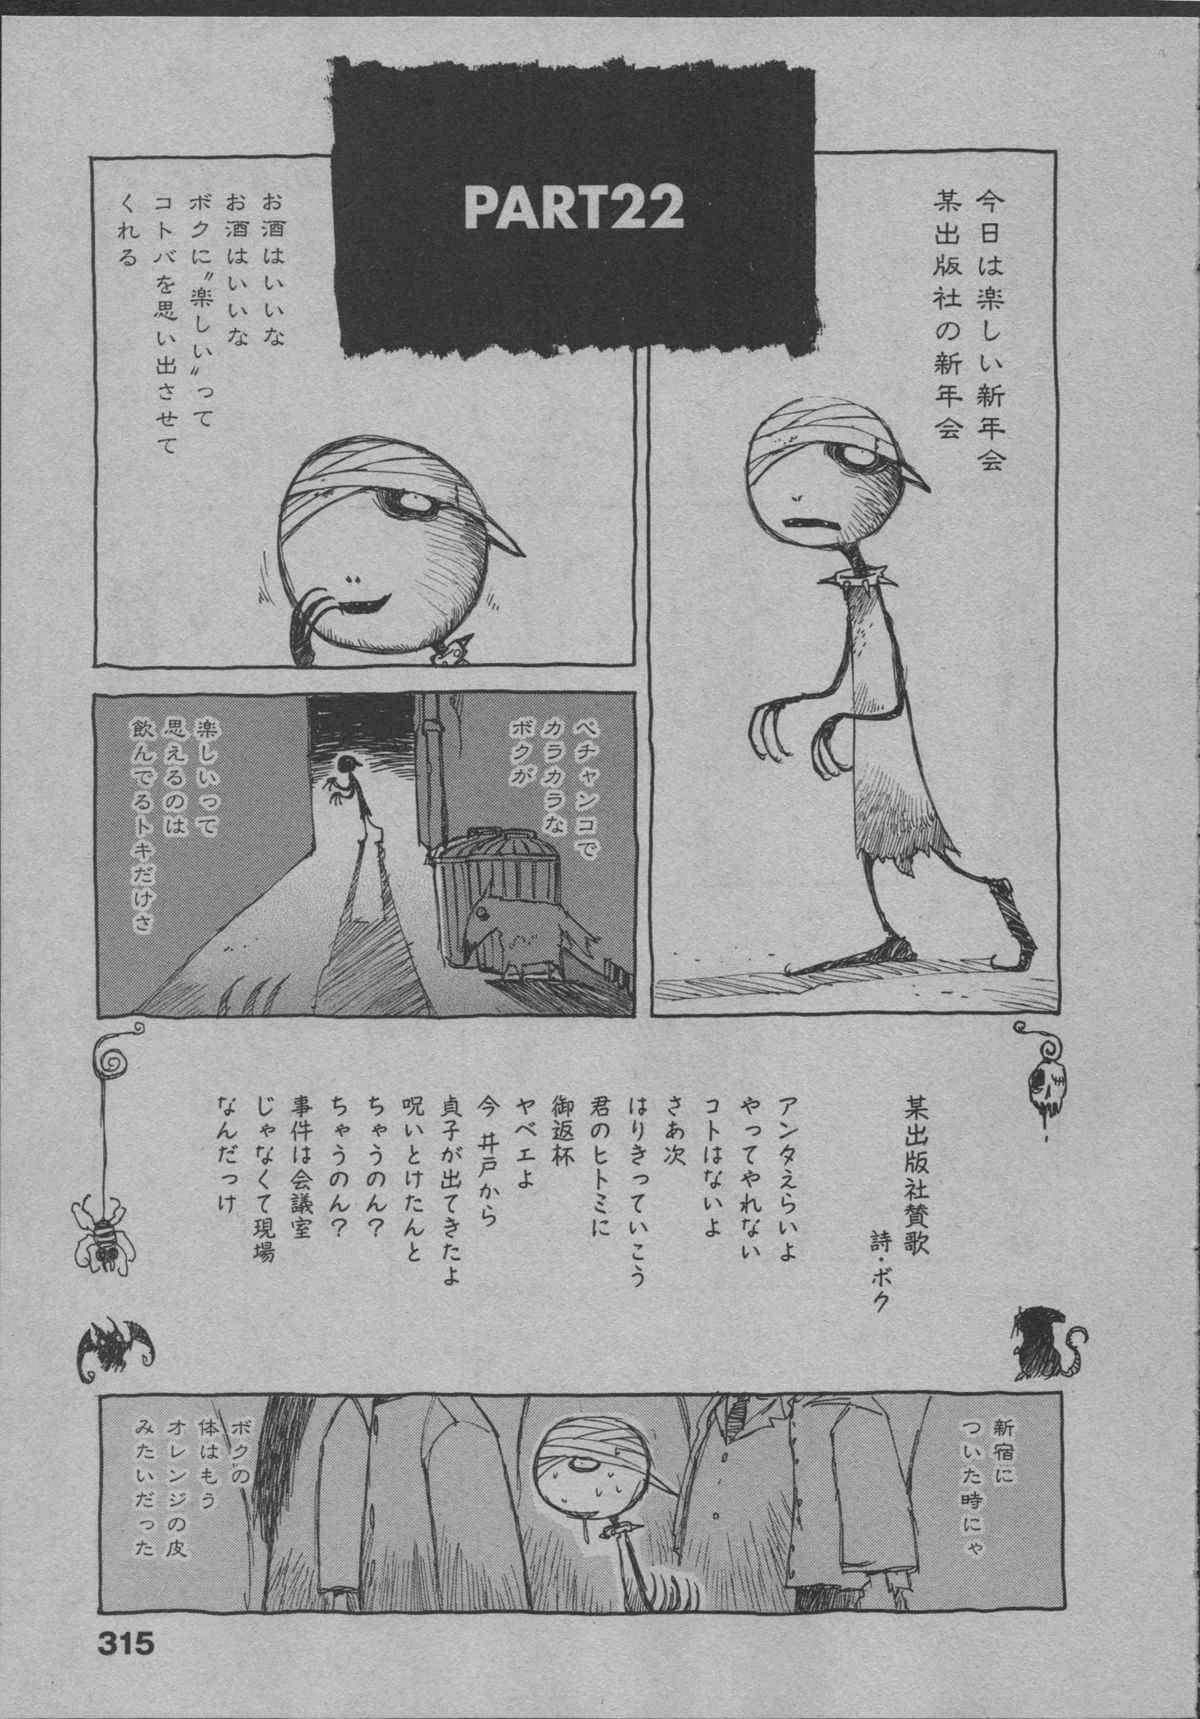 PART22
今日は楽しい新年会
某出版社の新年会
お酒はいいな
お酒はいいな
ボクに〝楽しい〟って
コトバを思い出させて
くれる
ペチャンコで
カラカラな
ボクが
楽しいって
思えるのは
飲んでるトキだけさ
某出版社賛歌
詩・ボク
アンタえらいよ
やってやれない
コトはないよ
さあ次
はりきっていこう
君のヒトミに
御返杯
ヤベエよ
今 井戸から
貞子が出てきたよ
呪いとけたんと
ちゃうのん?
ちゃうのん?
事件は会議室
じゃなくて現場
なんだっけ
新宿に
ついた時にゃ
ボクの
体はもう
オレンジの皮
みたいだった
315